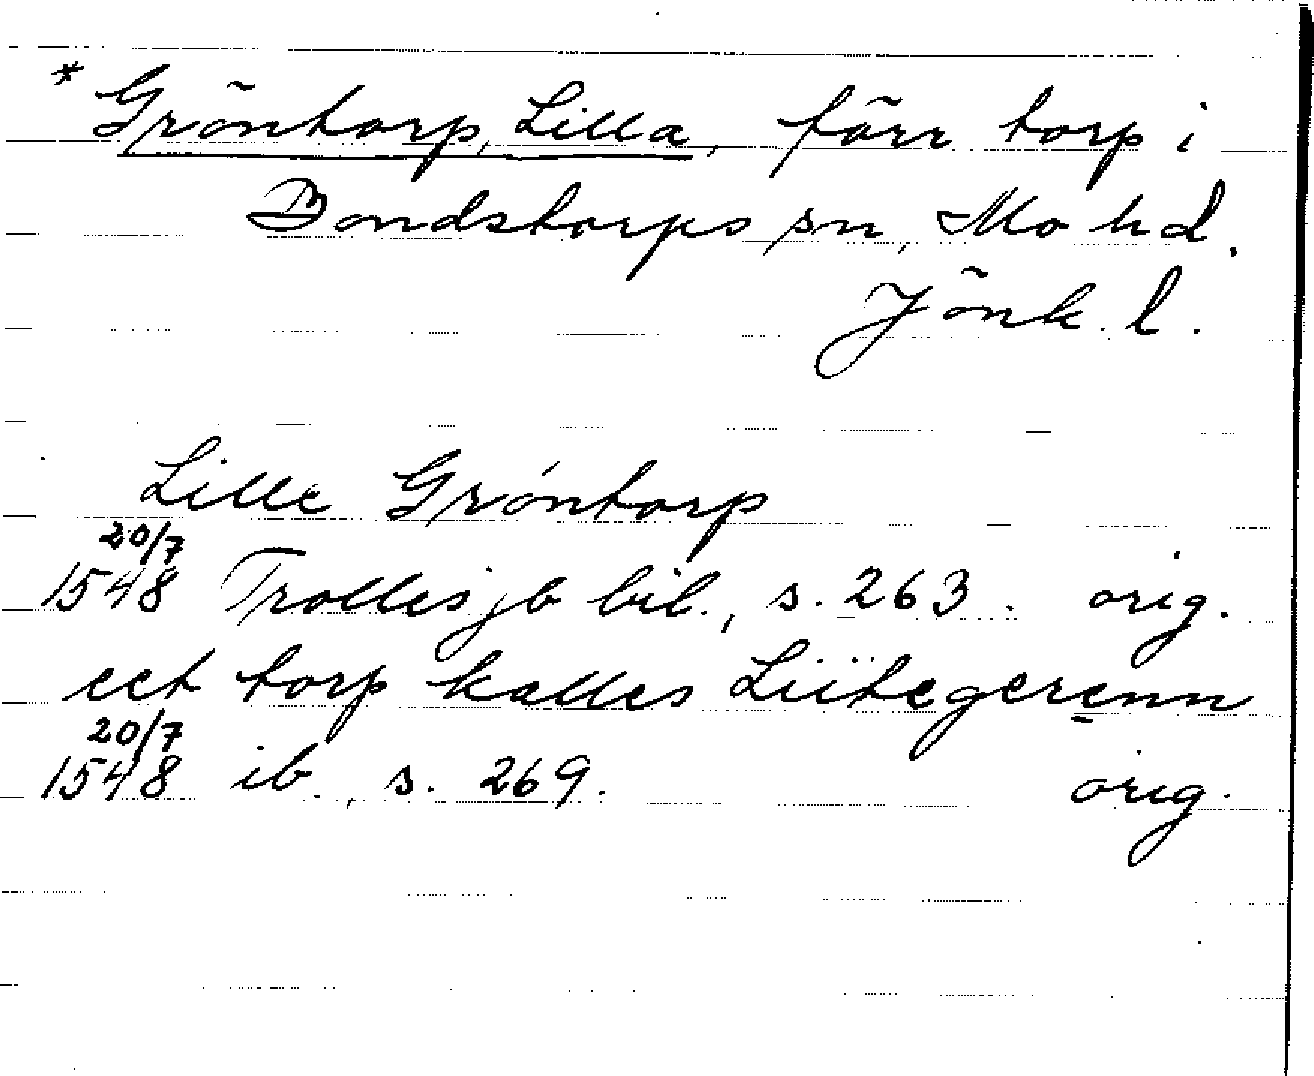 * Gröntorp, Lilla, förr torp i
Bondstorps sn, Mo hd.
Jönk. l.
Lille Gröntorp
20/7
1548 Trolles jb bil., s. 263. orig.
eet torp kalles Liitegerenn
20/7
1548 ib., s. 269. orig.